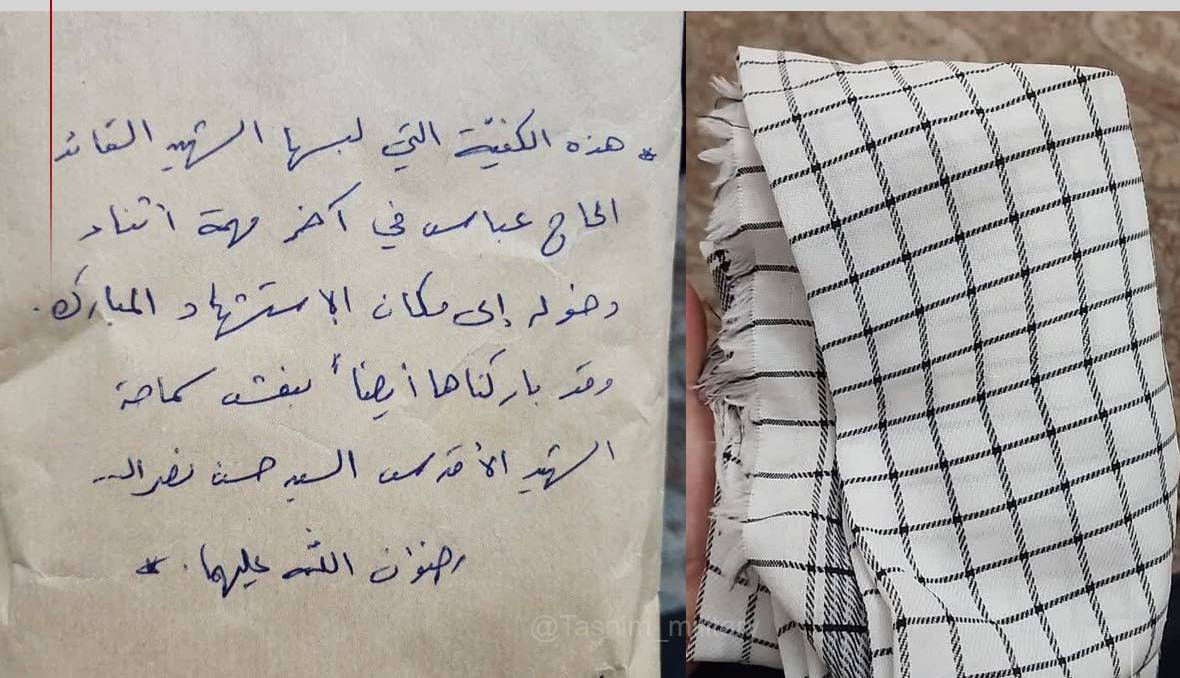 * هذه الكفيّة التي لبسها الشهيد القائد
الحاج عباس في آخر مهمة أثناء
دخوله إلى مكان الاستشهاد المبارك.
وقد باركناها أيضاً بنعش سماحة
الشهيد الأقدس السيد حسن نصرالله
رضوان الله عليهما. *
@Tasnim_military